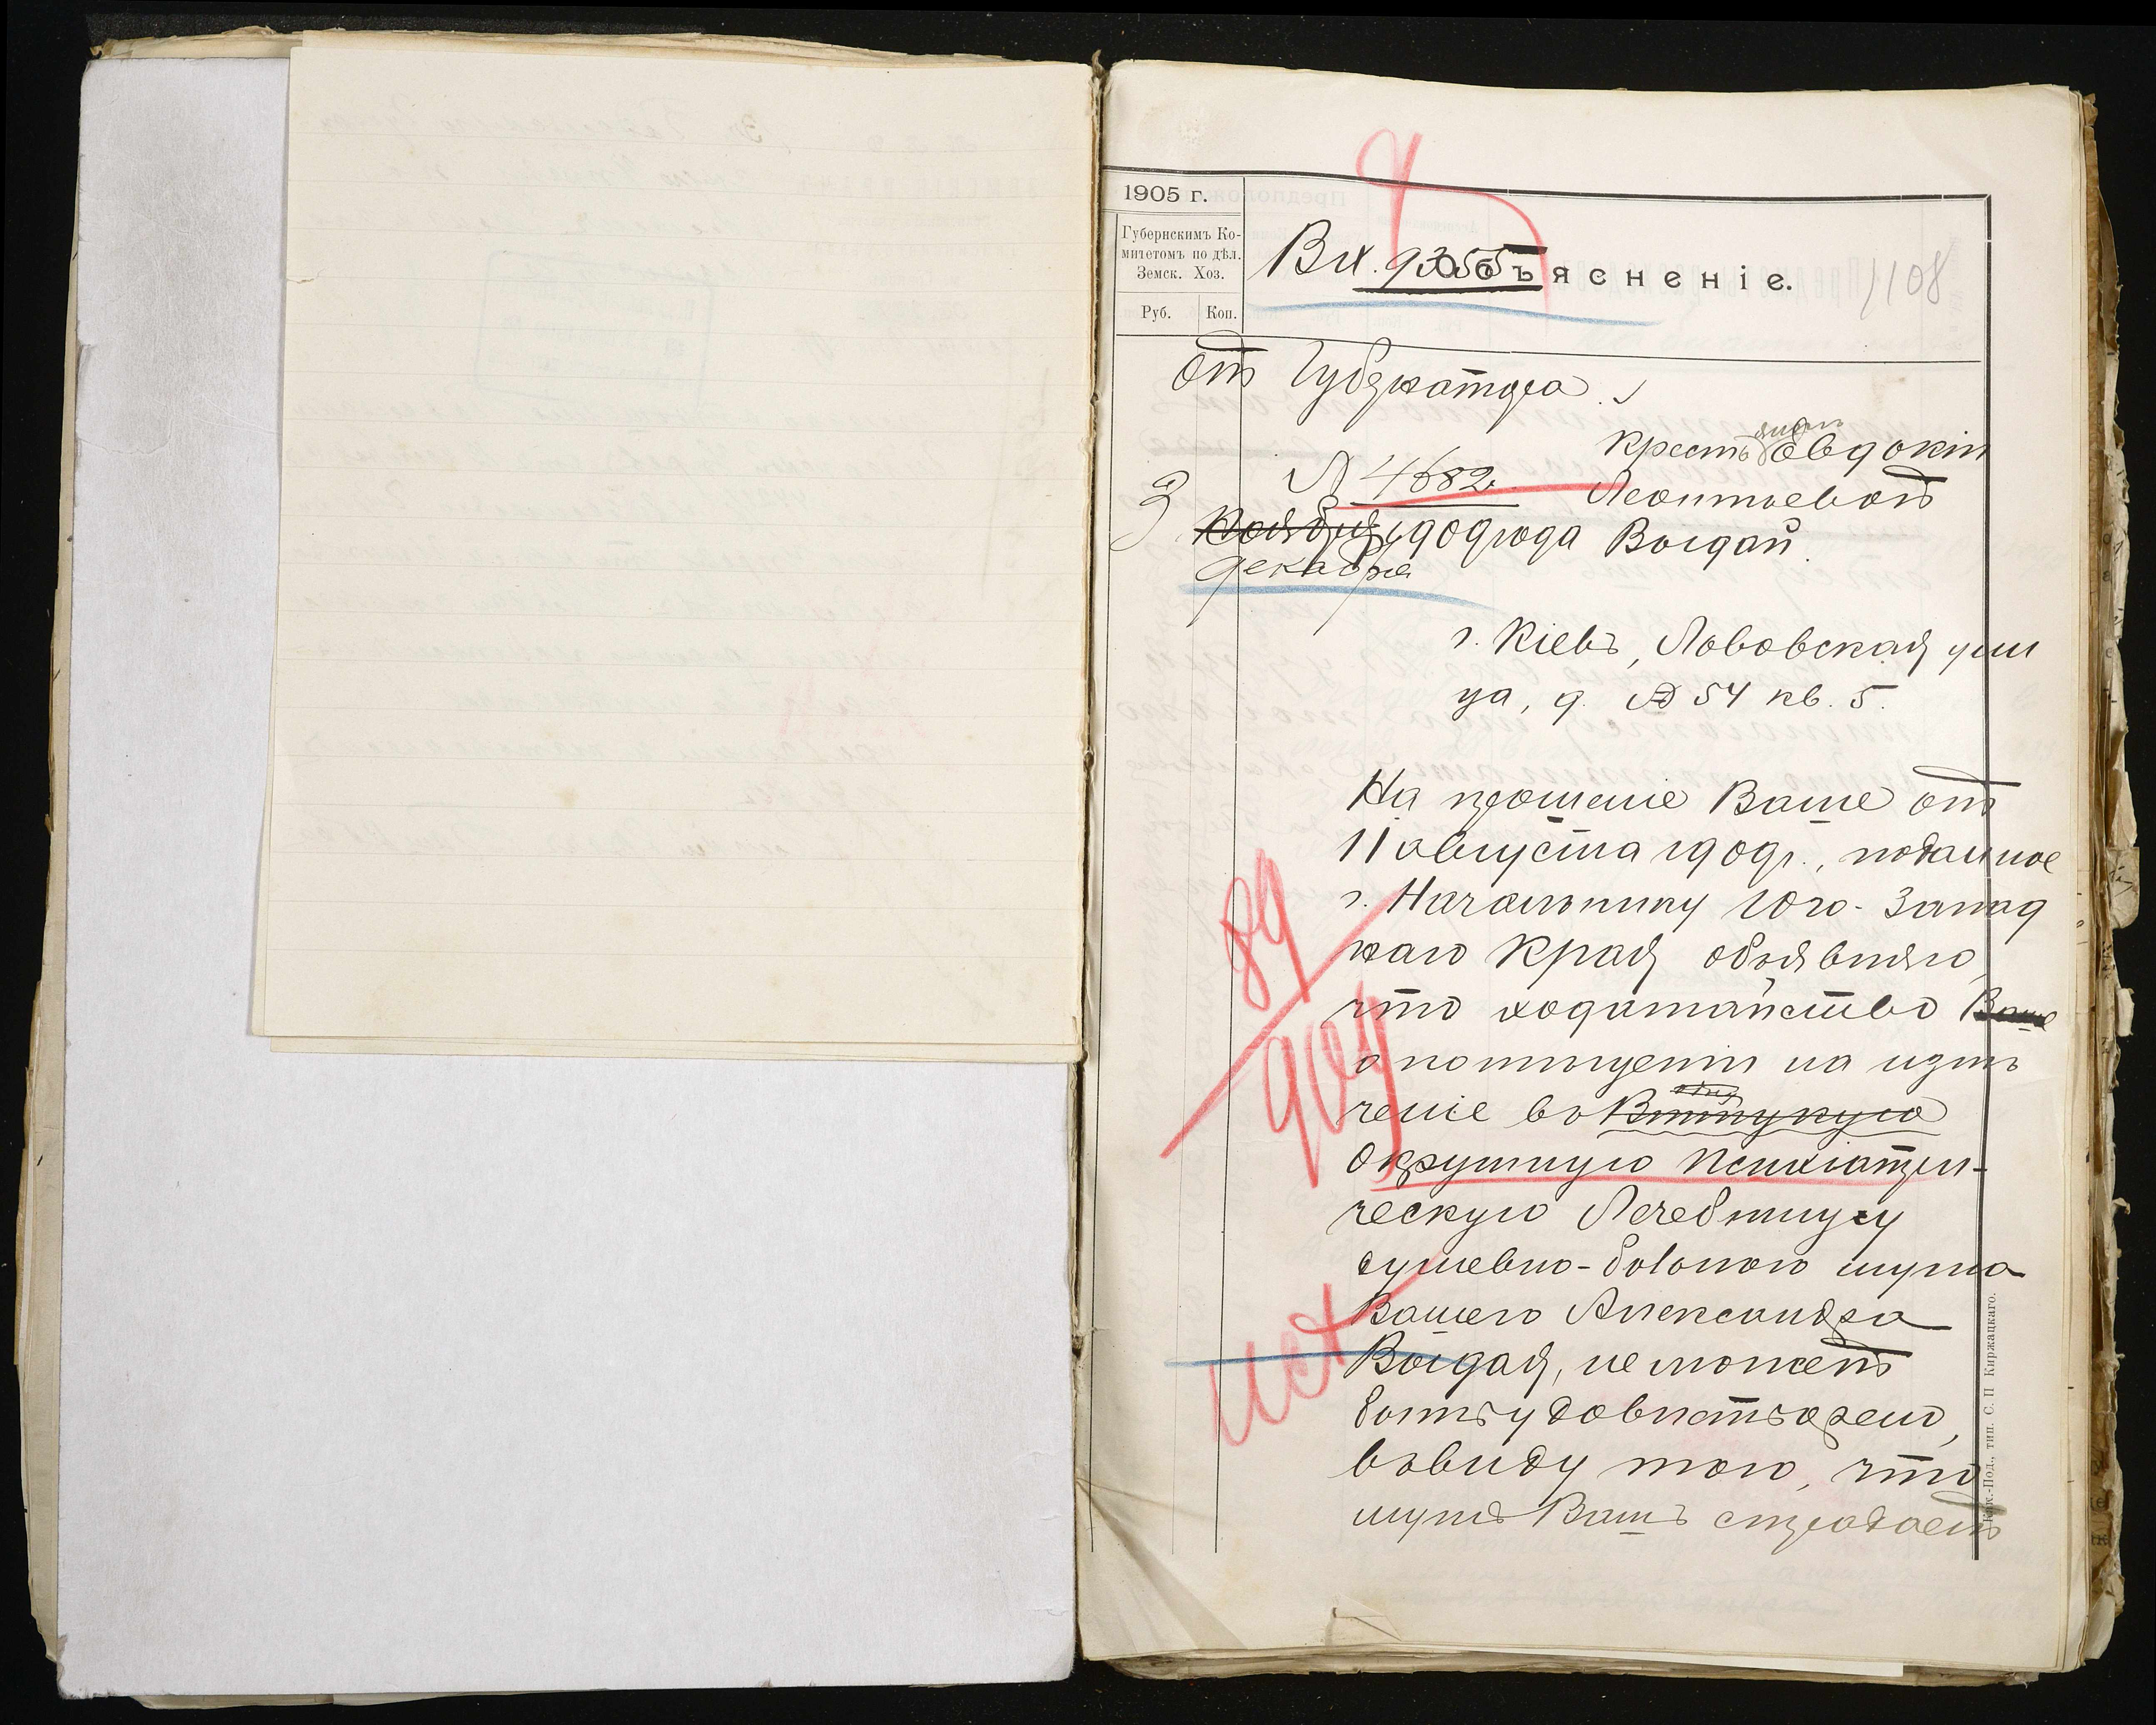 1905 г.
Губернскимъ Ко-
митетомъ по дѣл.
Земск. Хоз.
Руб. Коп.
Объясненіе.
Вх. 9355
1108
отъ Губернатора.
крестьянкѣ Евдокіи
№ 4682
Леонтьевой
3 ноября 1909 года
Выгдай.
декабря
г. Кіевъ, Львовская ули
ца, д. № 54 кв. 5.
На прошеніе Ваше отъ
11 августа 1909 г., поданное
г. Начальнику Юго-Запад
наго Края объявляю,
что ходатайство Ваше
о помѣщеніи на излѣ
ченіе въ Винницкую
Окружную Психіатри-
ческую Лечебницу
душевно-больного мужа
Вашего Александра
Выгдая, не можетъ
быть удовлетворено,
въ виду того, что
мужъ Вашъ страдаетъ
89
исх
Кам.-Под., тип. С. П Киржацкаго.